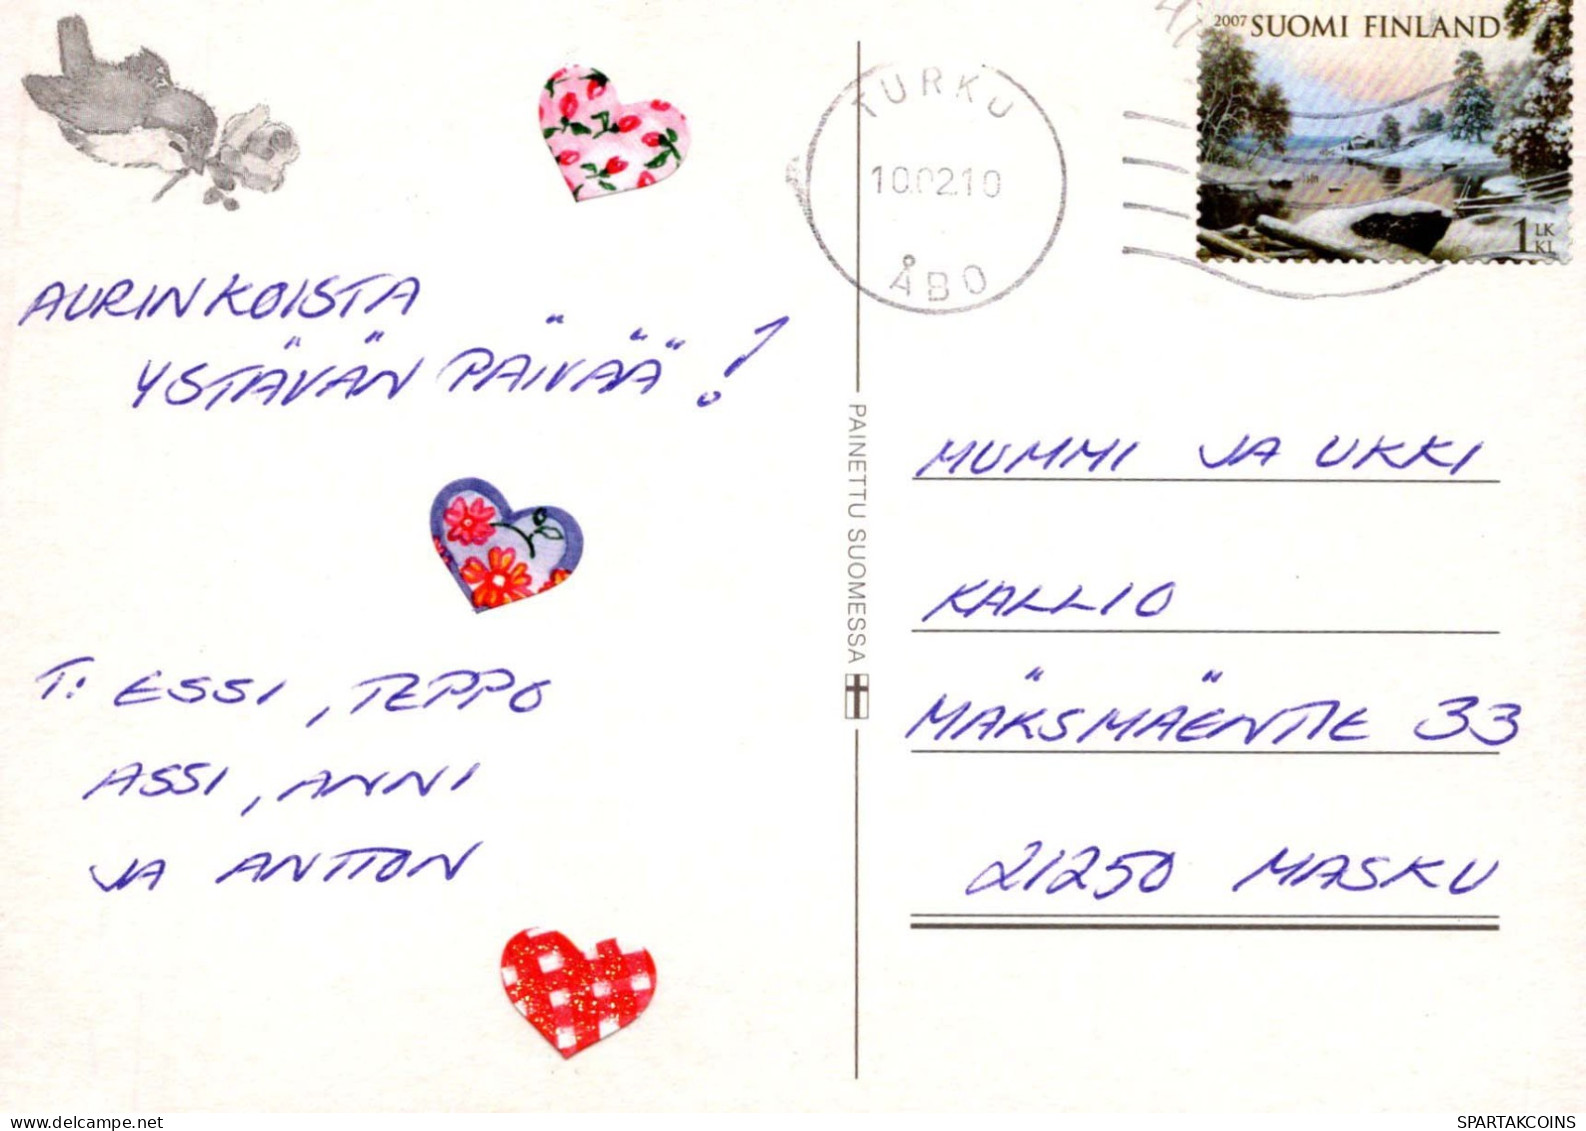 2007 SUOMI FINLAND
1 LK
KL
TURKU
10.02.10
ÅBO
AURINKOISTA
YSTÄVÄN PÄIVÄÄ!
T: ESSI, TEPPO
ASSI, ANNI
JA ANTTON
PAINETTU SUOMESSA
MUMMI JA UKKI
KALLIO
MÄKSMÄENTIE 33
21250 MASKU
SPARTAKCOINS